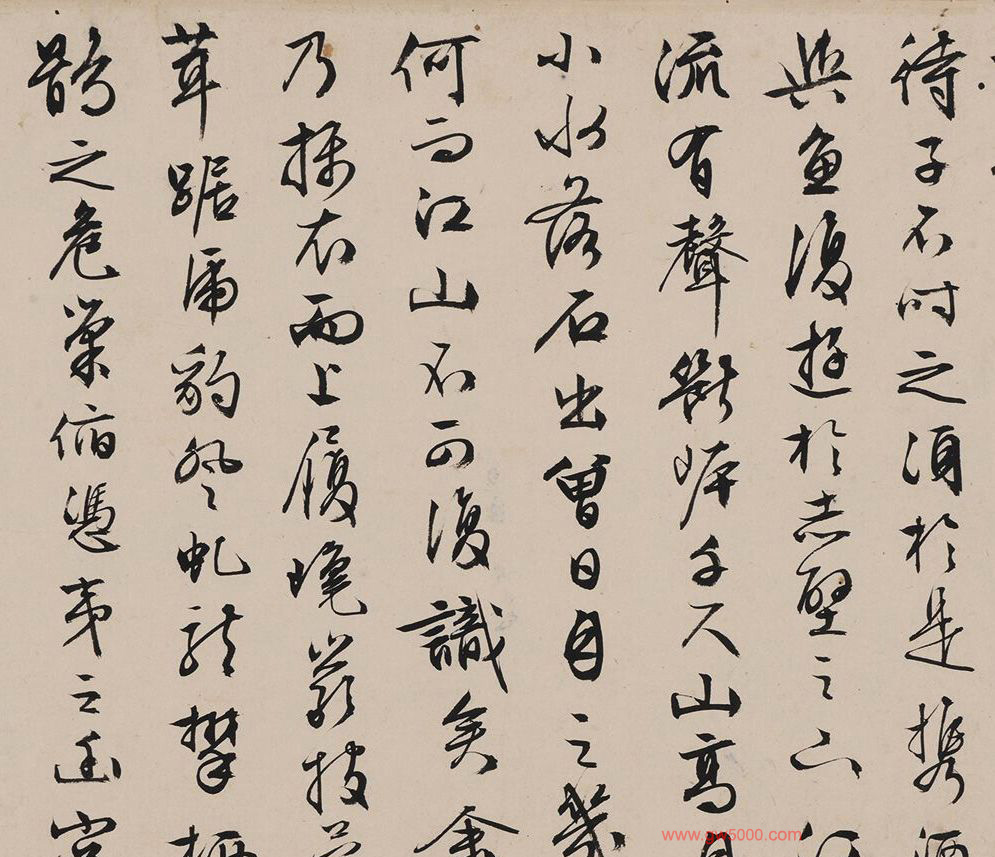 待子不時之須於是攜酒
與魚復遊於赤壁之下江
流有聲斷岸千尺山高月
小水落石出曾日月之幾
何而江山不可復識矣余
乃攝衣而上履巉巖披蒙
茸踞虎豹登虬龍攀栖
鶻之危巢俯憑夷之幽宮
www.gw5000.com